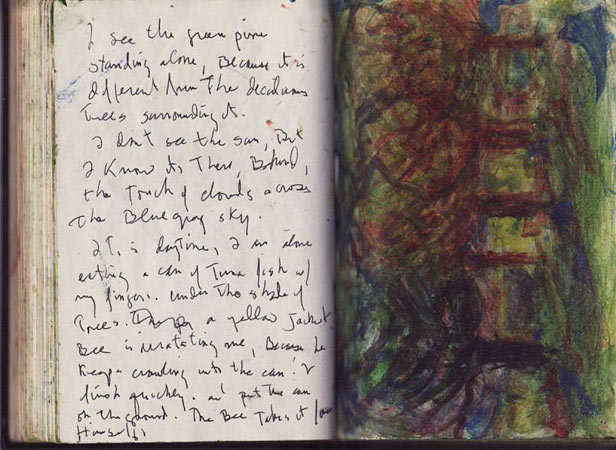 I see the green pine
standing alone, Because it is
different from the deciduous
Trees surrounding it.
I don't see the sun, But
I Know its There, Behind,
the Touch of clouds across
the Blue gray sky.
It is daytime, I am alone
eating a can of Tuna fish w/
my fingers. under the shade of
Trees. a yellow Jacket
Bee is irratating me, Because he
Keeps crawling into the can. I
finish quickly. and put the can
on the ground. The Bee Takes it for
Himself.